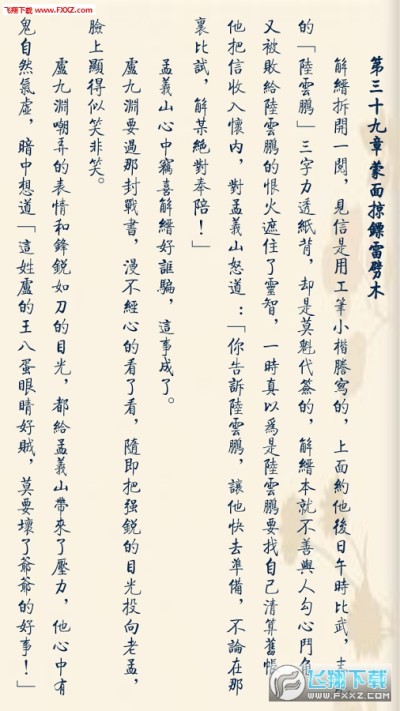 飞翔下载
www.FXXZ.com
第三十九章 蒙面掠鏢雷劈木
解縉拆開一閱，見信是用工筆小楷謄寫的，上面約他後日午時比武，
的「陸雲鵬」三字力透紙背，却是莫魁代簽的，解縉本就不善與人勾心鬥角，
又被敗給陸雲鵬的恨火遮住了靈智，一時真以爲是陸雲鵬要找自己清算舊帳，
他把信收入懷內，對孟義山怒道：「你告訴陸雲鵬，讓他快去準備，不論在那
裏比試，解某絕對奉陪！」
孟義山心中竊喜解縉好誆騙，這事成了。
盧九淵要過那封戰書，漫不經心的看了看，隨即把强銳的目光投向老孟，
臉上顯得似笑非笑。
盧九淵嘲弄的表情和鋒銳如刀的目光，都給孟義山帶來了壓力，他心中有
鬼自然氣虛，暗中想道「這姓盧的王八蛋眼睛好賊，莫要壞了爺爺的好事！」
飞翔下载
WWW.FXXZ.COM